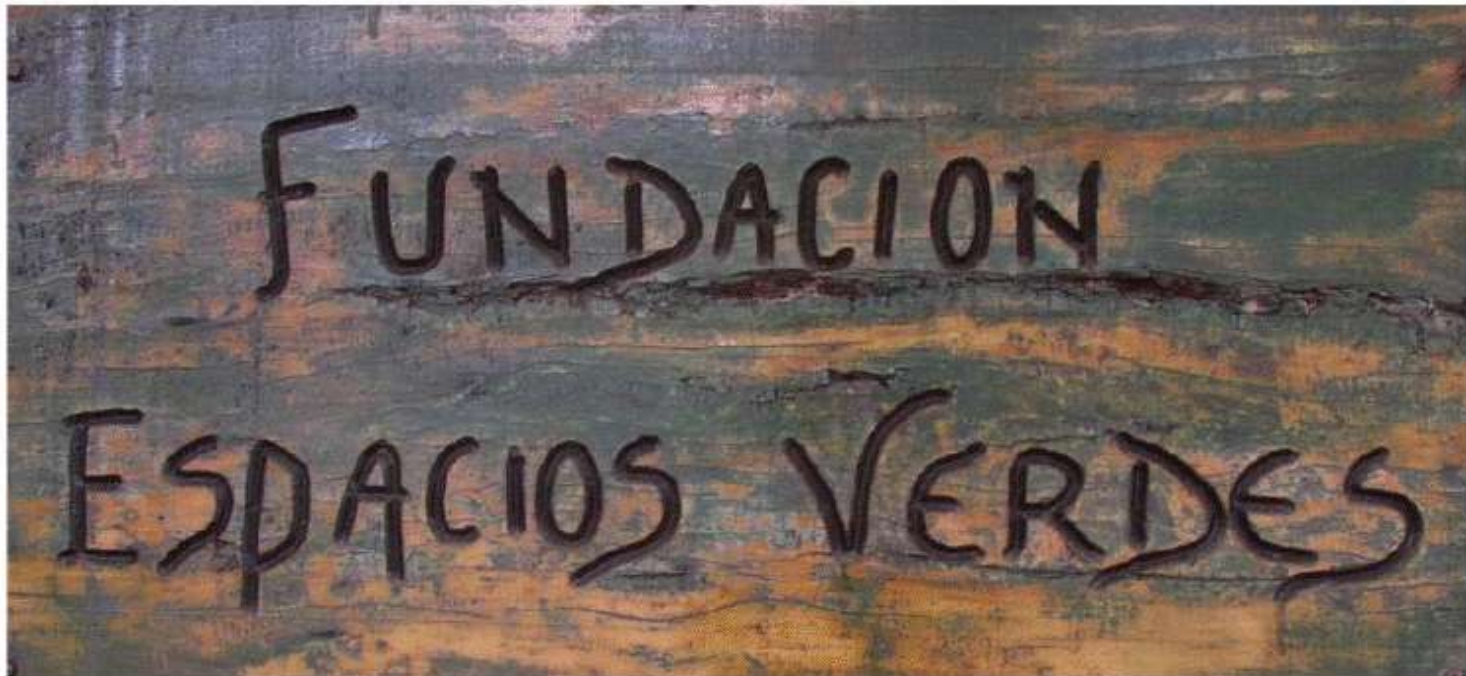 FUNDACION
ESPACIOS VERDES